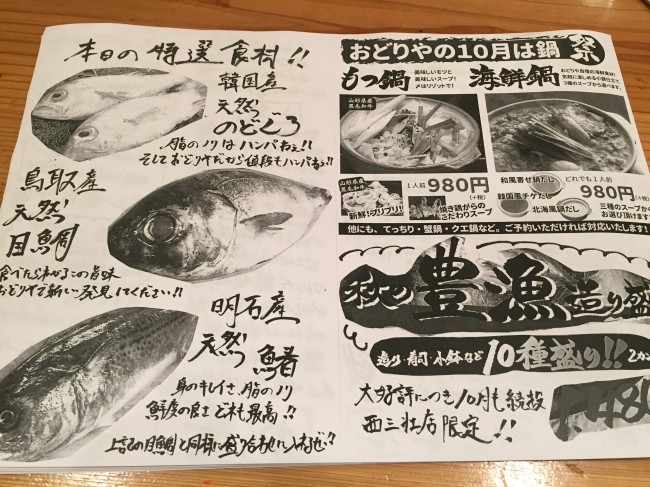 本日の特選食材!!
韓国産
天然
のどぐろ
脂のノリはハンパねぇ!!
そしておどりやだから値段もハンパねぇ!!
鳥取産
天然
目鯛
食べたらわかるこの旨味
おどりやで新しい発見してください!!
明石産
天然
鰆
身のキレイさ、脂のノリ
鮮度の良さどれも最高!!
おどりやの10月は鍋祭
もつ鍋
美味しいモツと
美味しいスープ!
〆はリゾットで!
山形県産
黒毛和牛
山形県産
黒毛和牛
新鮮!プリプリ!
1人前 980円
(+税)
焼き鶏がらの
こだわりスープ
海鮮鍋
おどりや自慢の海鮮食材!
気軽に楽しめる小鍋仕立て
3種のスープから選べます。
和風寄せ鍋だし
どれでも1人前
980円
(+税)
韓国風チゲだし
北海風鍋だし
三種のスープから
お選び頂けます
他にも、てっちり・蟹鍋・クエ鍋など。ご予約いただければ対応いたします!
秋の豊漁造り盛
造り・寿司・小鉢など
10種盛り!!
2カン
大好評につき10月も続投
西三荘店限定!!